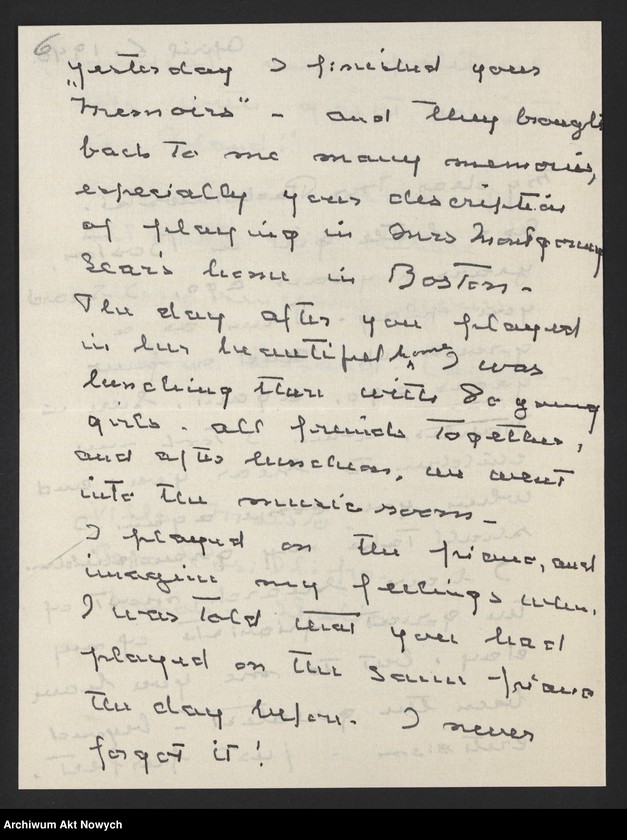 6
yesterday I finished your
"Memoirs" - and they brought
back to me many memories,
especially your description
of playing in Mrs Montgomery
Sear's home in Boston -
The day after you played
in her beautiful home I was
lunching there with 80 young
girls. all friends together,
and after luncheon, we went
into the music room -
I played on the piano, and
imagine my feelings when,
I was told that you had
played on the same piano
the day before. I never
forgot it!
Archiwum Akt Nowych